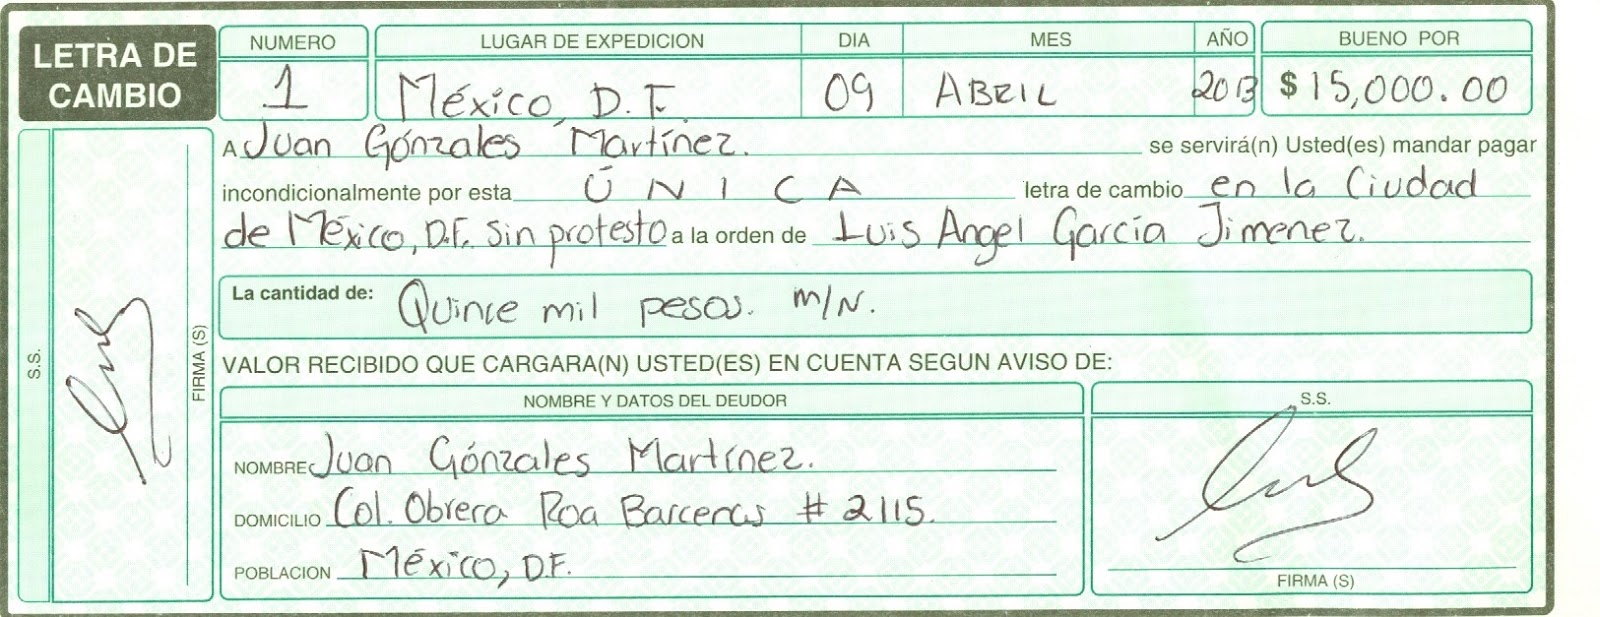 LETRA DE CAMBIO
NUMERO LUGAR DE EXPEDICION DIA MES AÑO BUENO POR
1 México, D.F. 09 ABRIL 2013 $ 15,000.00
A Juan Gónzales Martínez. se servirá(n) Usted(es) mandar pagar
incondicionalmente por esta ÚNICA letra de cambio en la Ciudad
de México, D.F. Sin protesto a la orden de Luis Angel García Jimenez.
La cantidad de: Quince mil pesos. m/N.
VALOR RECIBIDO QUE CARGARA(N) USTED(ES) EN CUENTA SEGUN AVISO DE:
NOMBRE Y DATOS DEL DEUDOR
NOMBRE Juan Gónzales Martínez.
DOMICILIO Col. Obrera Roa Barcenas # 2115.
POBLACION México, D.F.
S.S.
FIRMA (S)
S.S.
FIRMA (S)